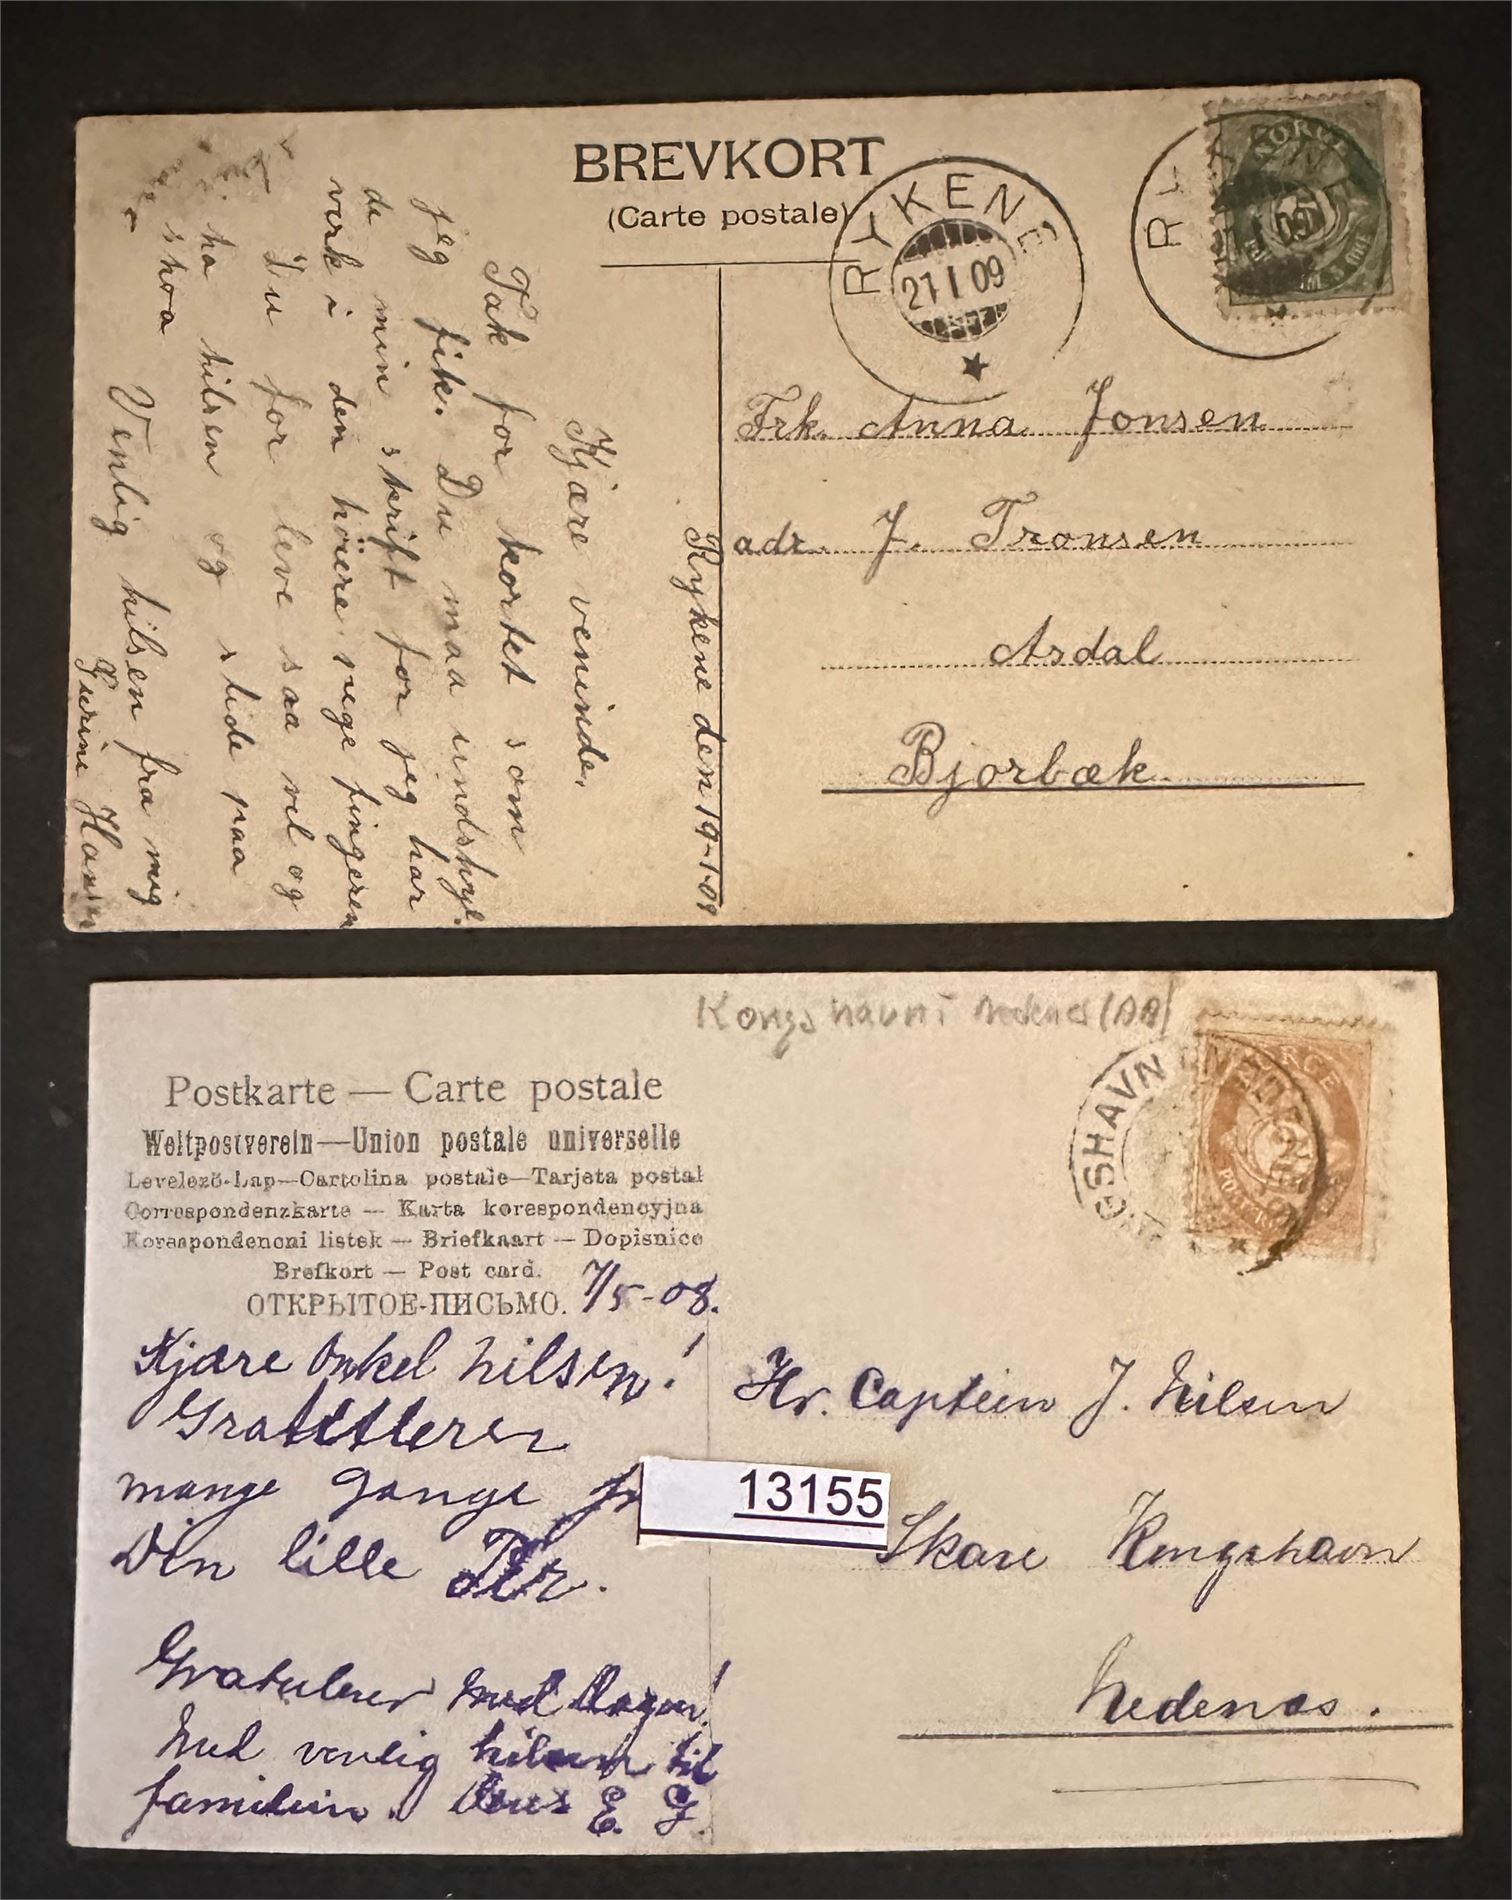 BREVKORT
(Carte postale)
RYKENE
21 I 09
NORGE
Frk. Anna Jonsen
adr. J. Tronsen
Asdal
Bjorbæk
Rykene den 19-1-09
Kjære veninde.
Tak for kortet som
jeg fik. Du maa undskyl-
de min skrift for jeg har
verk i den höire pege fingeren
Du for leve saa vel og
ha hilsen og slide paa
skoa
Venlig hilsen fra mig
Gurine
Kongshavn i Nedenes (AA)
KONGSHAVN
NORGE
Postkarte — Carte postale
Weltpostverein—Union postale universelle
Levelező-Lap—Cartolina postale—Tarjeta postal
Correspondenzkarte — Karta korespondencyjna
Korespondencni listek — Briefkaart — Dopisnice
Brefkort — Post card.
ОТКРЫТОЕ-ПИСЬМО.
7/5-08.
Kjære Onkel Nilsen!
mange Gange
Din lille Per.
Gratulerer med Dagen!
Med venlig hilsen til
familien. Deres E. G.
Hr. Captein J. Nilsen
13155
Skare Kongshavn
Nedenæs.